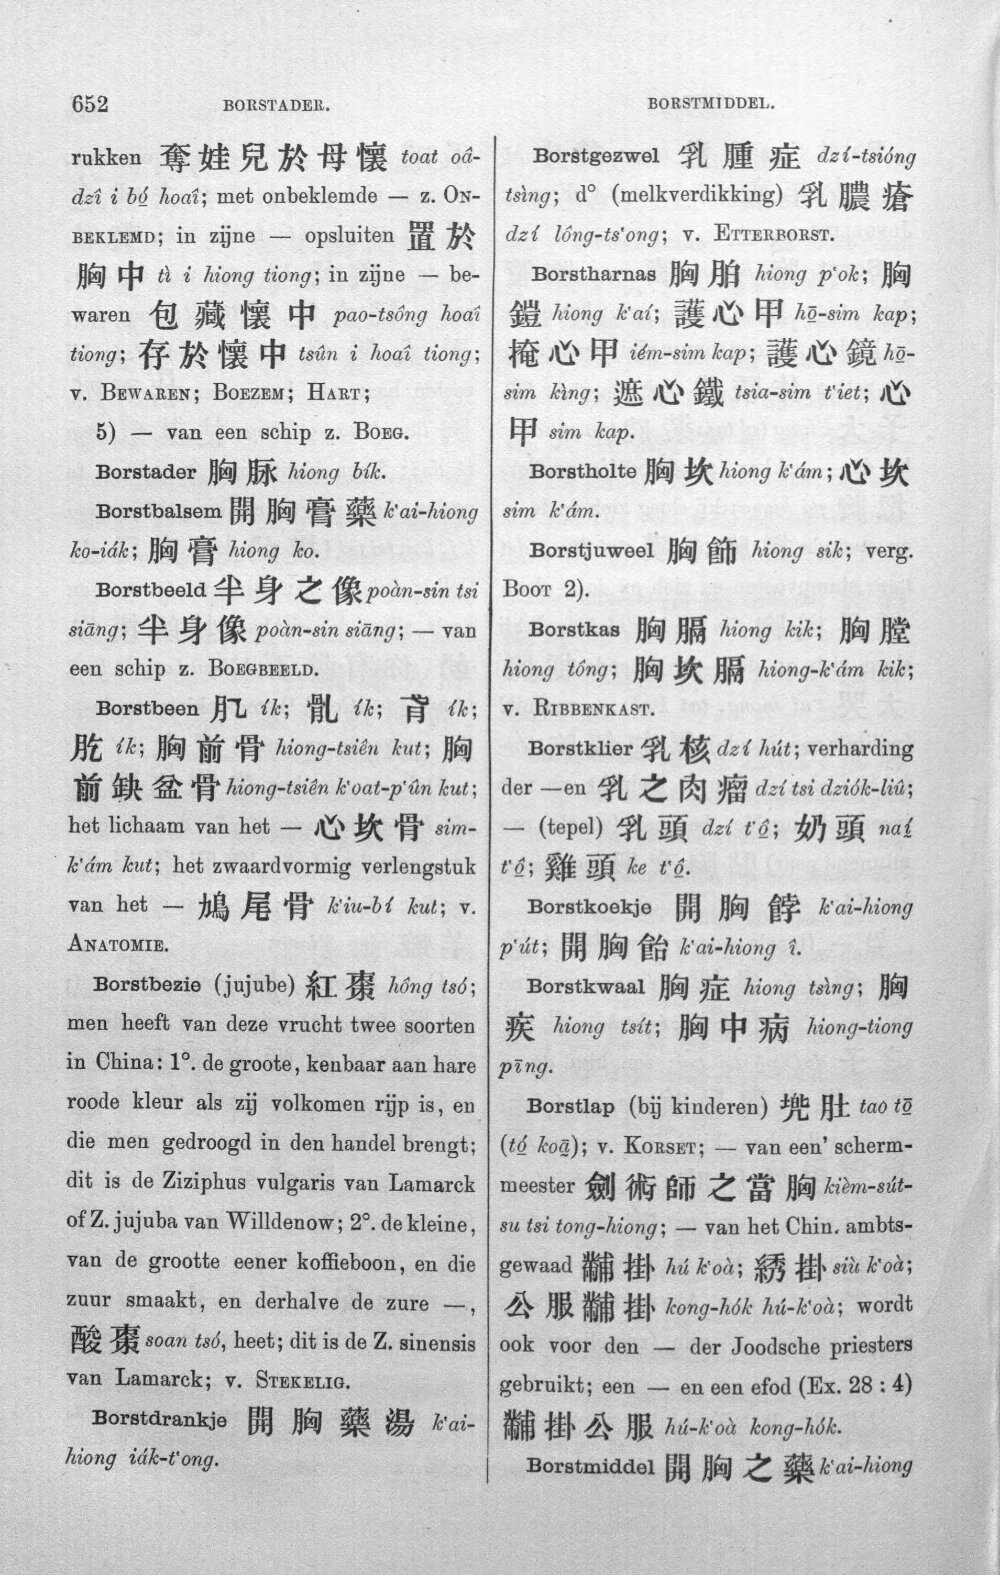 652
BORSTADER.
BORSTMIDDEL.
rukken 奪娃兒於母懷 toat oâ-
dzî i bó̲ hoaî; met onbeklemde — z. ON-
BEKLEMD; in zijne — opsluiten 置於
胸中 tì i hiong tiong; in zijne — be-
waren 包藏懷中 pao-tsông hoaî
tiong; 存於懷中 tsûn i hoaî tiong;
v. BEWAREN; BOEZEM; HART;
5) — van een schip z. BOEG.
Borstader 胸脉 hiong bík.
Borstbalsem 開胸膏藥 k‘ai-hiong
ko-iák; 胸膏 hiong ko.
Borstbeeld 半身之像 poàn-sin tsi
siāng; 半身像 poàn-sin siāng; — van
een schip z. BOEGBEELD.
Borstbeen 肊 ík; 骪 ík; 肓 ík;
肐 ík; 胸前骨 hiong-tsiên kut; 胸
前缺盆骨 hiong-tsiên k‘oat-p‘ûn kut;
het lichaam van het — 心坎骨 sim-
k‘ám kut; het zwaardvormig verlengstuk
van het — 鳩尾骨 k‘iu-bí kut; v.
ANATOMIE.
Borstbezie (jujube) 紅棗 hông tsó;
men heeft van deze vrucht twee soorten
in China: 1°. de groote, kenbaar aan hare
roode kleur als zij volkomen rijp is, en
die men gedroogd in den handel brengt;
dit is de Ziziphus vulgaris van Lamarck
of Z. jujuba van Willdenow; 2°. de kleine,
van de grootte eener koffieboon, en die
zuur smaakt, en derhalve de zure —,
酸棗 soan tsó, heet; dit is de Z. sinensis
van Lamarck; v. STEKELIG.
Borstdrankje 開胸藥湯 k‘ai-
hiong iák-t‘ong.
Borstgezwel 乳腫症 dzí-tsióng
tsìng; d° (melkverdikking) 乳膿瘡
dzí lông-ts‘ong; v. ETTERBORST.
Borstharnas 胸胉 hiong p‘ok; 胸
鎧 hiong k‘aí; 護心甲 hō̲-sim kap;
掩心甲 iém-sim kap; 護心鏡 hō̲-
sim kìng; 遮心鐵 tsia-sim t‘iet; 心
甲 sim kap.
Borstholte 胸坎 hiong k‘ám; 心坎
sim k‘ám.
Borstjuweel 胸飾 hiong sik; verg.
BOOT 2).
Borstkas 胸膈 hiong kik; 胸膛
hiong tông; 胸坎膈 hiong-k‘ám kik;
v. RIBBENKAST.
Borstklier 乳核 dzí hút; verharding
der —en 乳之肉瘤 dzí tsi dziók-liû;
— (tepel) 乳頭 dzí t‘ô̲; 奶頭 naí̲
t‘ô̲; 雞頭 ke t‘ô̲.
Borstkoekje 開胸餑 k‘ai-hiong
p‘út; 開胸飴 k‘ai-hiong î.
Borstkwaal 胸症 hiong tsìng; 胸
疾 hiong tsít; 胸中病 hiong-tiong
pīng.
Borstlap (bij kinderen) 兠肚 tao tō̲
(tó̲ koā̲); v. KORSET; — van een’ scherm-
meester 劍術師之當胸 kièm-sút-
su tsi tong-hiong; — van het Chin. ambts-
gewaad 黼掛 hú k‘oà; 綉掛 siù k‘oà;
公服黼掛 kong-hók hú-k‘oà; wordt
ook voor den — der Joodsche priesters
gebruikt; een — en een efod (Ex. 28 : 4)
黼掛公服 hú-k‘oà kong-hók.
Borstmiddel 開胸之藥 k‘ai-hiong